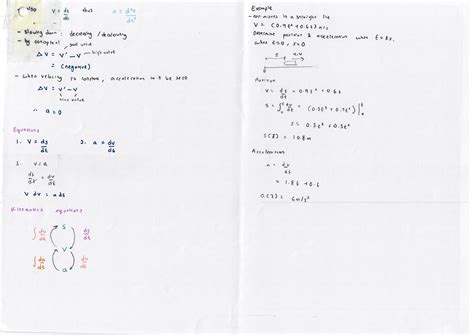 also V = ds/dt thus a = d²s/dt²
- slowing down: decreasing / decelerating
- by concept
small value
ΔV = V' - V high value
= (negative)
- when velocity is constant, acceleration will be zero
ΔV = V' - V
same value
∴ a = 0
Equations
1. V = ds/dt 2. a = dv/dt
3. V = a
ds/dt = dv/dt
V dv = a ds
Kinematics equations
∫ dv/dt S ds/dt
V
∫ dv/dt a dv/dt
Example
- car moves in a straight line
V = (0.9t² + 0.6t) m/s
Determine position & acceleration when t = 3s.
when t = 0, s = 0
s a, v
0
Position
V = ds/dt = 0.9t² + 0.6t
s = 0.3t³ + 0.3t²
s(3) = 10.8m
Acceleration
a = dv/dt
= 1.8t + 0.6
a(3) = 6m/s²